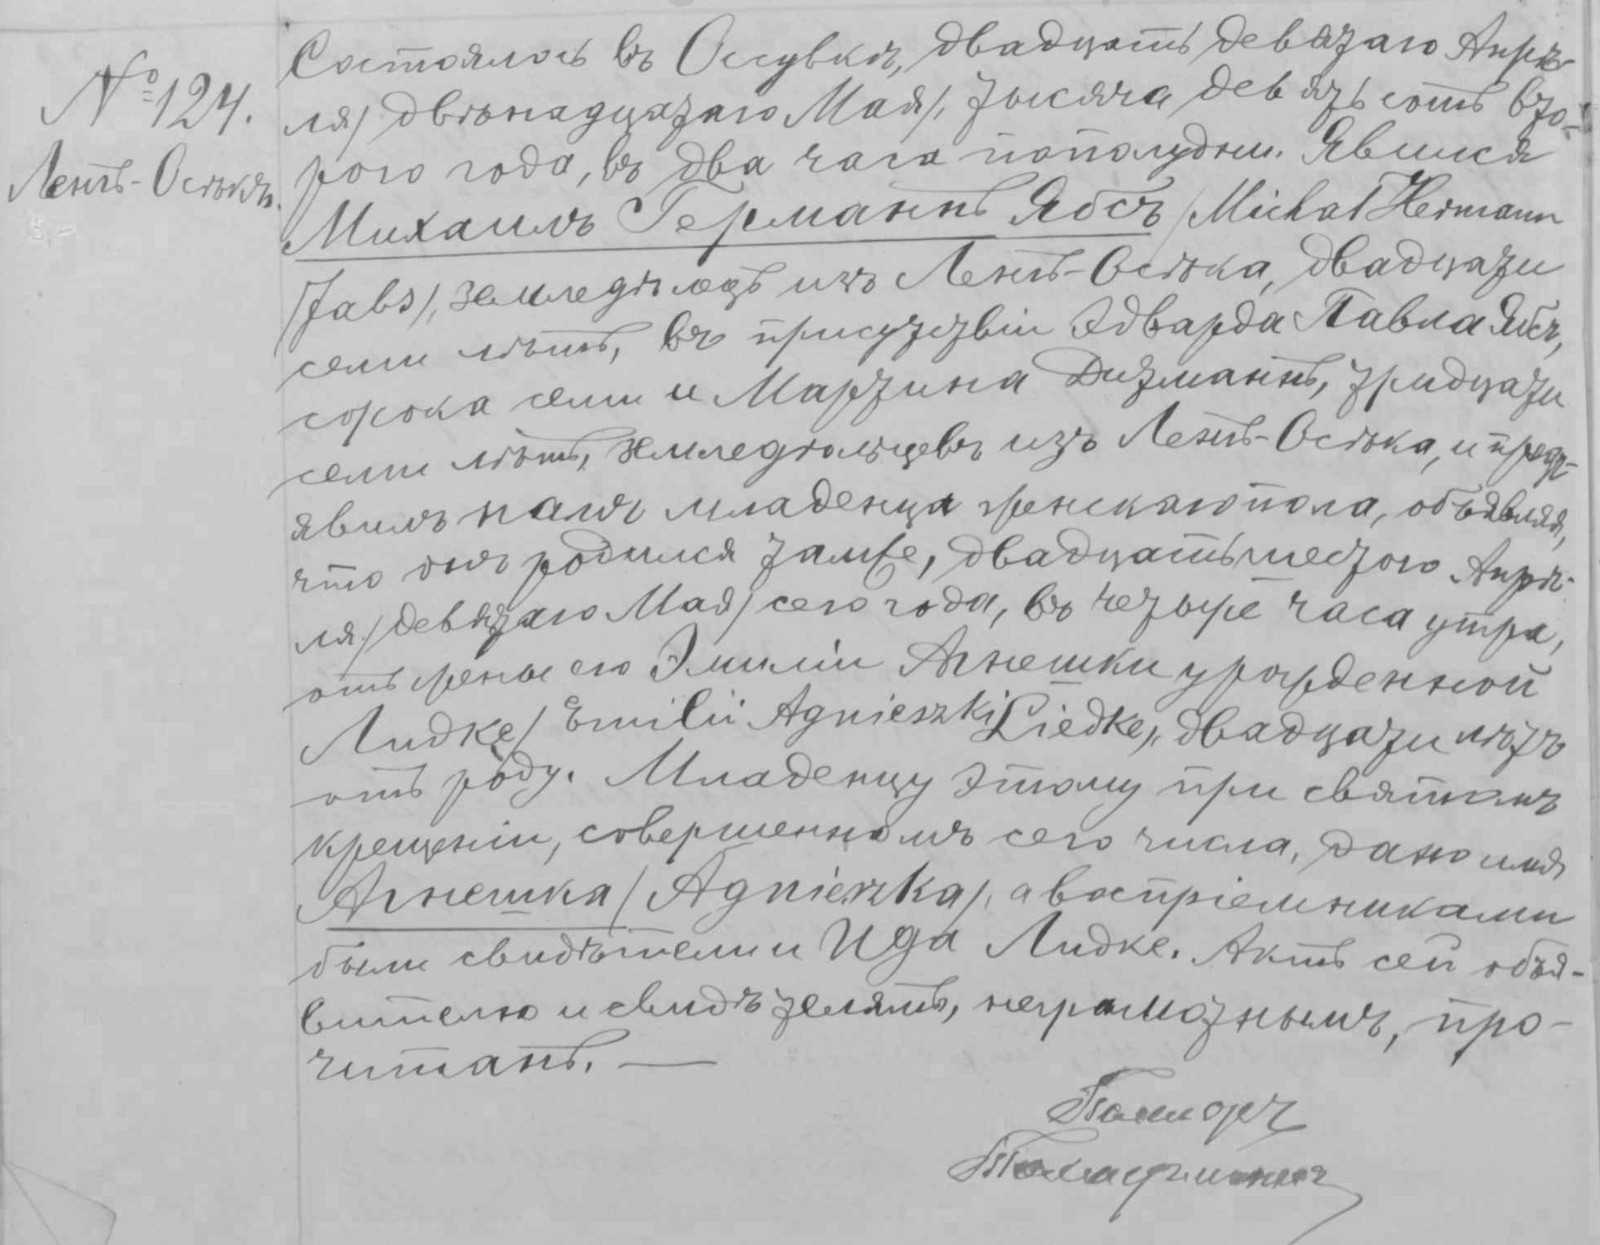 № 124.
Лентъ-Осѣкъ.
Состоялось въ Осувкѣ, двадцать девятаго Апрѣ-
ля/двѣнадцатаго Мая/, тысяча девятьсотъ вто-
рого года, въ два часа пополудни. Явился
Михаилъ Германнъ Ябсъ /Michał Hermann
Jabs/, земледѣлецъ изъ Лентъ-Осѣка, двадцати
семи лѣтъ, въ присутствіи Эдварда Павла Ябсъ,
сорока семи и Мартина Дитманнъ, тридцати
семи лѣтъ, земледѣльцевъ изъ Лентъ-Осѣка, и предъ-
явилъ намъ младенца женскаго пола, объявляя,
что онъ родился тамже, двадцать шестого Апрѣ-
ля/девятаго Мая/ сего года, въ четыре часа утра,
отъ жены его Эмиліи Агнешки урожденной
Лидке/Emilii Agnieszki Liedke/, двадцати лѣтъ
отъ роду. Младенцу этому при святомъ
крещеніи, совершенномъ сего числа, дано имя
Агнешка/Agnieszka/, а воспріемниками
были свидѣтели и Ида Лидке. Актъ сей объя-
вителю и свидѣтелямъ, неграмотнымъ, про-
читанъ. —
Пасторъ